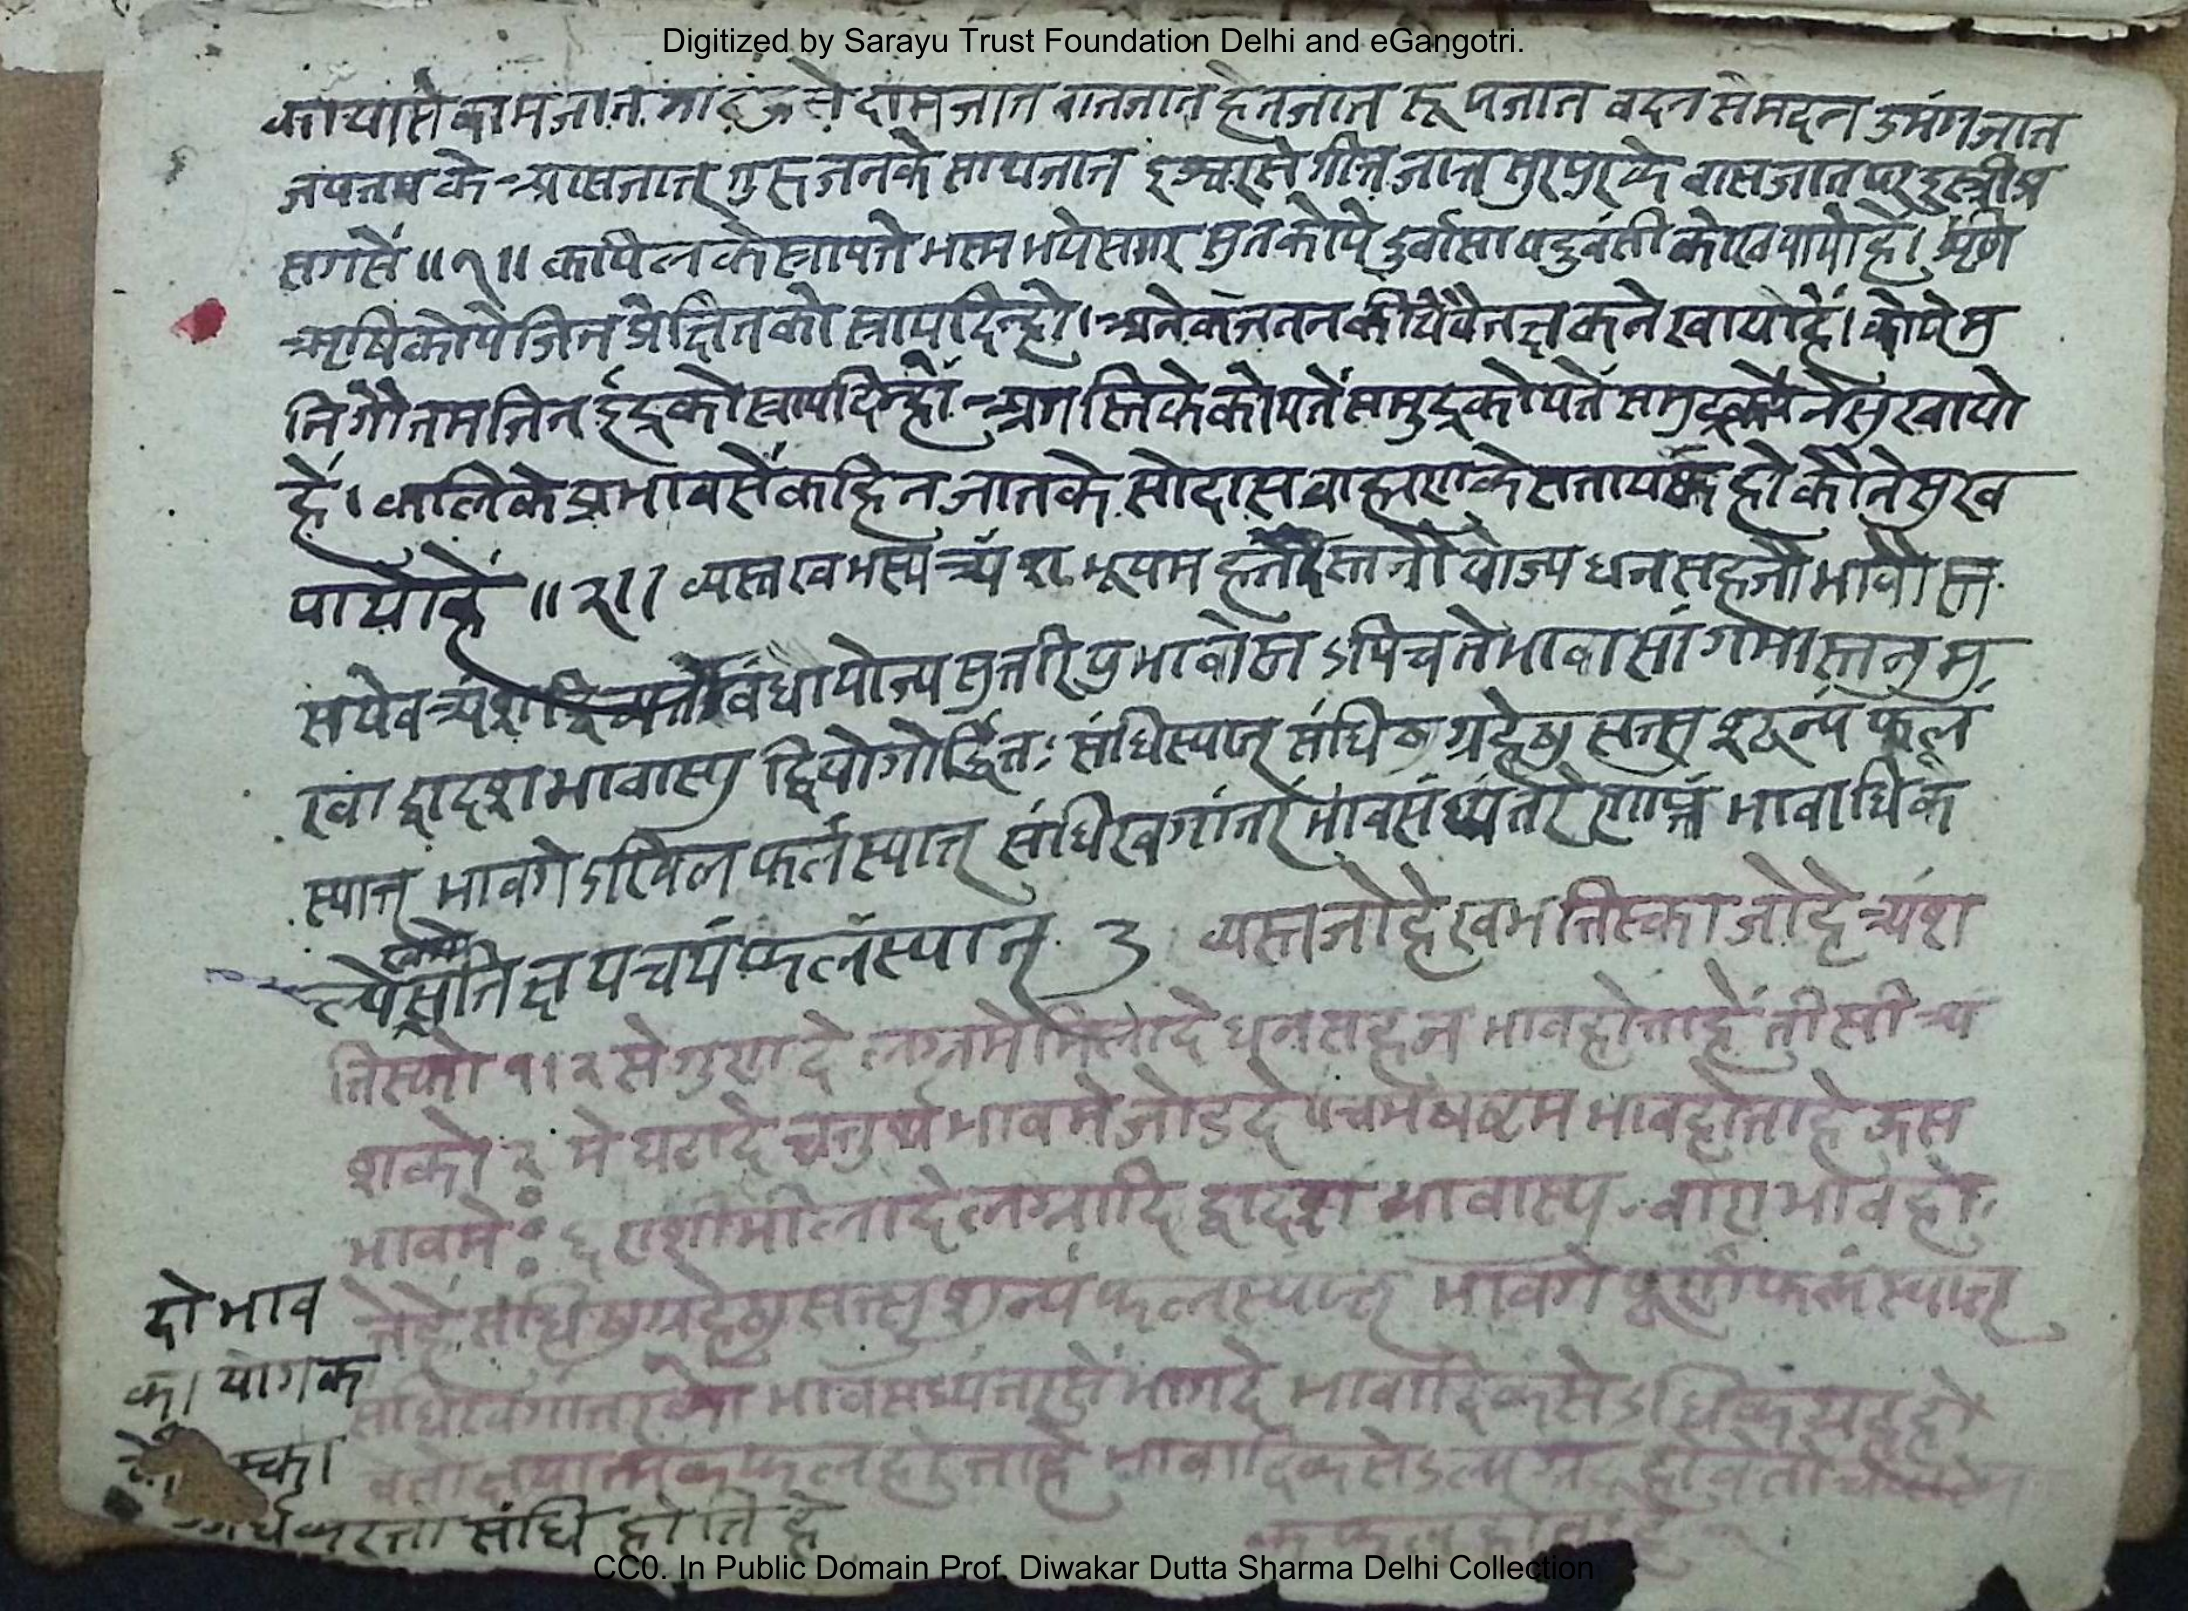 Digitized by Sarayu Trust Foundation Delhi and eGangotri.
कायासे कामजात गाठहुसे दामजात वातजात हेतजात रूपजात वदन से मदन उमंगजात
जपतपके आसजात गुरुजनके साथजात इश्वरसे गीतजात सुरपुरके वासजात परइस्त्रीप्र
सगसें ॥१॥ कपिलके स्रापते भस्म भये सगर सुत कोपे दुर्वासा यदुवंसी को खपायो है। शृंगि
ऋषि कोपे जिन प्रीक्षितको स्राप दिन्हो। अनेक जतन कीये वै तक्षकने खायो हैं। कोपे मु
नि गौतम जिन ईंद्रको स्राप दिन्हों अगस्तिके कोपतें समुद्र कोपतें ने सुखायो
हें। कलिके प्रभावसें कहि न जातके सोदास ब्राह्मणके सताय कहो कौने सुख
पायो हें ॥२॥ व्यस्त खभस्य त्र्यंश तनौ योज्य धन सहजौ भावौ स्त
सयेव त्र्यंश योज्य सुतरिपु भावो स्त ऽपिच ते भावा सांगभास्तनुमु
खा द्वादश भावास्यु द्वियोगोर्द्धितः संधिस्यात् संधिष्ठग्रहेषु सत्सु शून्यं फलं
स्यात् भावगे ऽखिल फलं स्यात् संधिखगांतरं भावसंध्यंतरेणाप्तं भावाधिक
ल्पे सति क्षयचयं फलंस्यात् ३ व्यस्त जोहै खभ तिस्का जोहै त्र्यंश
तिस्को १।२ से गुणा दे लग्नमे मिलादे धन सहज भाव होताहें तीसी त्र्यं
शको २ मे घटादे चतुर्थ भावमे जोडदे पंचम षष्टम भाव होताहे ऊस
भावमे ६ राशी मीलादे लग्नादि द्वादश भावास्यु बारा भाव हो
तेहें संधिष्ठग्रहेषु सत्सु शून्यं फलं स्यात् भावगे पूर्णं फलं स्यात्
संधिखगांतरको भावसंध्यंतरसें भागदे भावादिकसे ऽधिक ग्रह हो
वेतो क्षयात्मक फल होताहे भावादिकसे ऽल्प ग्रह होवेतो
क फल होताहे
दो भाव
का योग क
स्का
करता संधि होति हे
CC0. In Public Domain Prof. Diwakar Dutta Sharma Delhi Collection